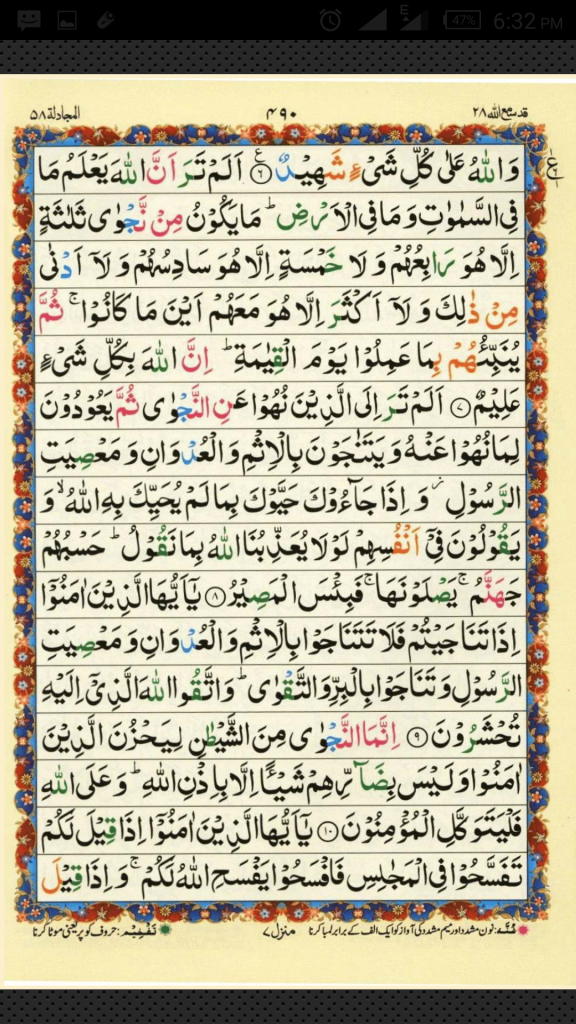 E
47%
6:32 PM
قد سمع الله ۲۸
۴۹۰
المجادلة ۵۸
وَاللّٰهُ عَلٰى كُلِّ شَیْءٍ شَهِیْدٌ ۝۶ اَلَمْ تَرَ اَنَّ اللّٰهَ یَعْلَمُ مَا
فِی السَّمٰوٰتِ وَمَا فِی الْاَرْضِ ؕ مَا یَكُوْنُ مِنْ نَّجْوٰى ثَلٰثَةٍ
اِلَّا هُوَ رَابِعُهُمْ وَلَا خَمْسَةٍ اِلَّا هُوَ سَادِسُهُمْ وَلَاۤ اَدْنٰى
مِنْ ذٰلِكَ وَلَاۤ اَكْثَرَ اِلَّا هُوَ مَعَهُمْ اَیْنَ مَا كَانُوْا ۚ ثُمَّ
یُنَبِّئُهُمْ بِمَا عَمِلُوْا یَوْمَ الْقِیٰمَةِ ؕ اِنَّ اللّٰهَ بِكُلِّ شَیْءٍ
عَلِیْمٌ ۝۷ اَلَمْ تَرَ اِلَى الَّذِیْنَ نُهُوْا عَنِ النَّجْوٰى ثُمَّ یَعُوْدُوْنَ
لِمَا نُهُوْا عَنْهُ وَیَتَنٰجَوْنَ بِالْاِثْمِ وَالْعُدْوَانِ وَمَعْصِیَتِ
الرَّسُوْلِ ؗ وَاِذَا جَآءُوْكَ حَیَّوْكَ بِمَا لَمْ یُحَیِّكَ بِهِ اللّٰهُ ۙ وَ
یَقُوْلُوْنَ فِیْۤ اَنْفُسِهِمْ لَوْلَا یُعَذِّبُنَا اللّٰهُ بِمَا نَقُوْلُ ؕ حَسْبُهُمْ
جَهَنَّمُ ۚ یَصْلَوْنَهَا ۚ فَبِئْسَ الْمَصِیْرُ ۝۸ یٰۤاَیُّهَا الَّذِیْنَ اٰمَنُوْۤا
اِذَا تَنَاجَیْتُمْ فَلَا تَتَنَاجَوْا بِالْاِثْمِ وَالْعُدْوَانِ وَمَعْصِیَتِ
الرَّسُوْلِ وَتَنَاجَوْا بِالْبِرِّ وَالتَّقْوٰى ؕ وَاتَّقُوا اللّٰهَ الَّذِیْۤ اِلَیْهِ
تُحْشَرُوْنَ ۝۹ اِنَّمَا النَّجْوٰى مِنَ الشَّیْطٰنِ لِیَحْزُنَ الَّذِیْنَ
اٰمَنُوْا وَلَیْسَ بِضَآرِّهِمْ شَیْـًٔا اِلَّا بِاِذْنِ اللّٰهِ ؕ وَعَلَى اللّٰهِ
فَلْیَتَوَكَّلِ الْمُؤْمِنُوْنَ ۝۱۰ یٰۤاَیُّهَا الَّذِیْنَ اٰمَنُوْۤا اِذَا قِیْلَ لَكُمْ
تَفَسَّحُوْا فِی الْمَجٰلِسِ فَافْسَحُوْا یَفْسَحِ اللّٰهُ لَكُمْ ۚ وَاِذَا قِیْلَ
غُنَّه: نون مشدد اور میم مشدد کی آواز کو ایک الف کے برابر لمبا کرنا
منزل ۷
تَفْخِیْم: حروف کو پُر یعنی موٹا کرنا